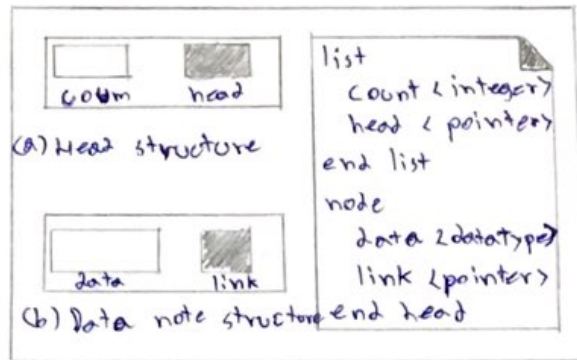 coum head
(a) Head structure
data link
(b) Data note structure
list
count <integer>
head <pointer>
end list
node
data <datatype>
link <pointer>
end head